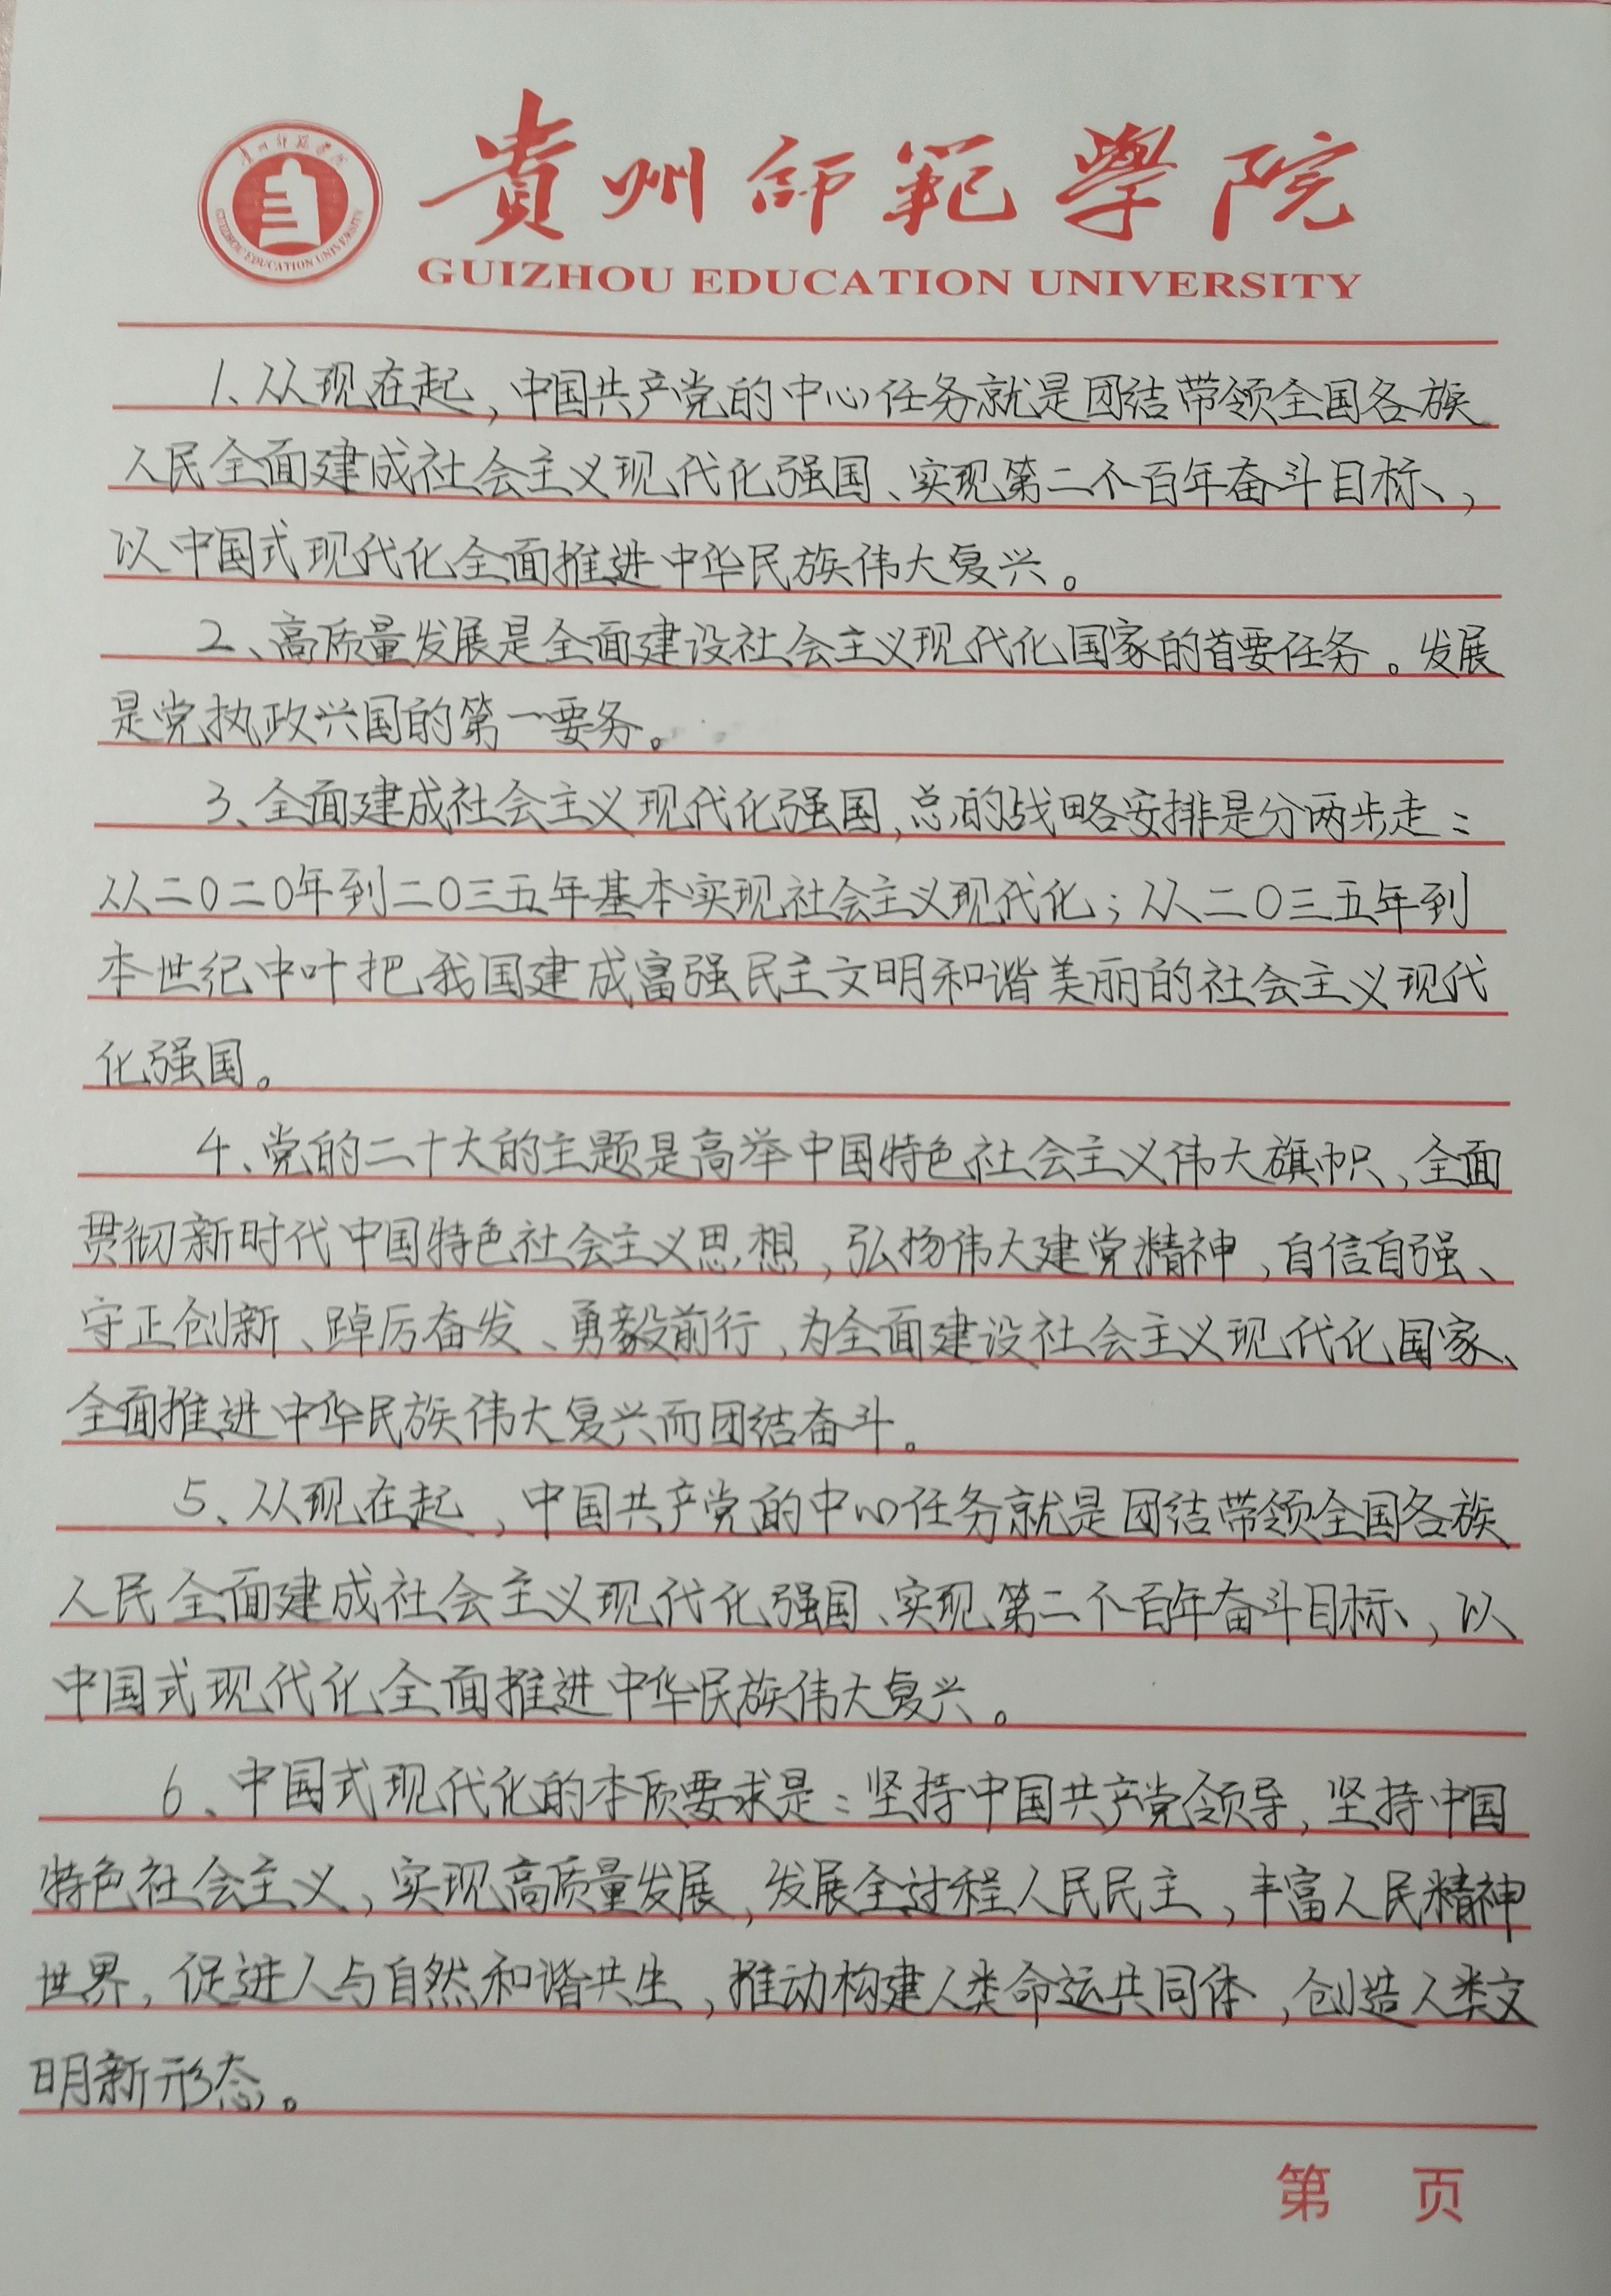 貴州師範學院
GUIZHOU EDUCATION UNIVERSITY
貴州師範學院
GUIZHOU EDUCATION UNIVERSITY
1、从现在起,中国共产党的中心任务就是团结带领全国各族
人民全面建成社会主义现代化强国、实现第二个百年奋斗目标,
以中国式现代化全面推进中华民族伟大复兴。
2、高质量发展是全面建设社会主义现代化国家的首要任务。发展
是党执政兴国的第一要务。
3、全面建成社会主义现代化强国,总的战略安排是分两步走:
从二〇二〇年到二〇三五年基本实现社会主义现代化;从二〇三五年到
本世纪中叶把我国建成富强民主文明和谐美丽的社会主义现代
化强国。
4、党的二十大的主题是高举中国特色社会主义伟大旗帜,全面
贯彻新时代中国特色社会主义思想,弘扬伟大建党精神,自信自强、
守正创新、踔厉奋发、勇毅前行,为全面建设社会主义现代化国家、
全面推进中华民族伟大复兴而团结奋斗。
5、从现在起,中国共产党的中心任务就是团结带领全国各族
人民全面建成社会主义现代化强国、实现第二个百年奋斗目标,以
中国式现代化全面推进中华民族伟大复兴。
6、中国式现代化的本质要求是:坚持中国共产党领导,坚持中国
特色社会主义,实现高质量发展,发展全过程人民民主,丰富人民精神
世界,促进人与自然和谐共生,推动构建人类命运共同体,创造人类文
明新形态。
第 页